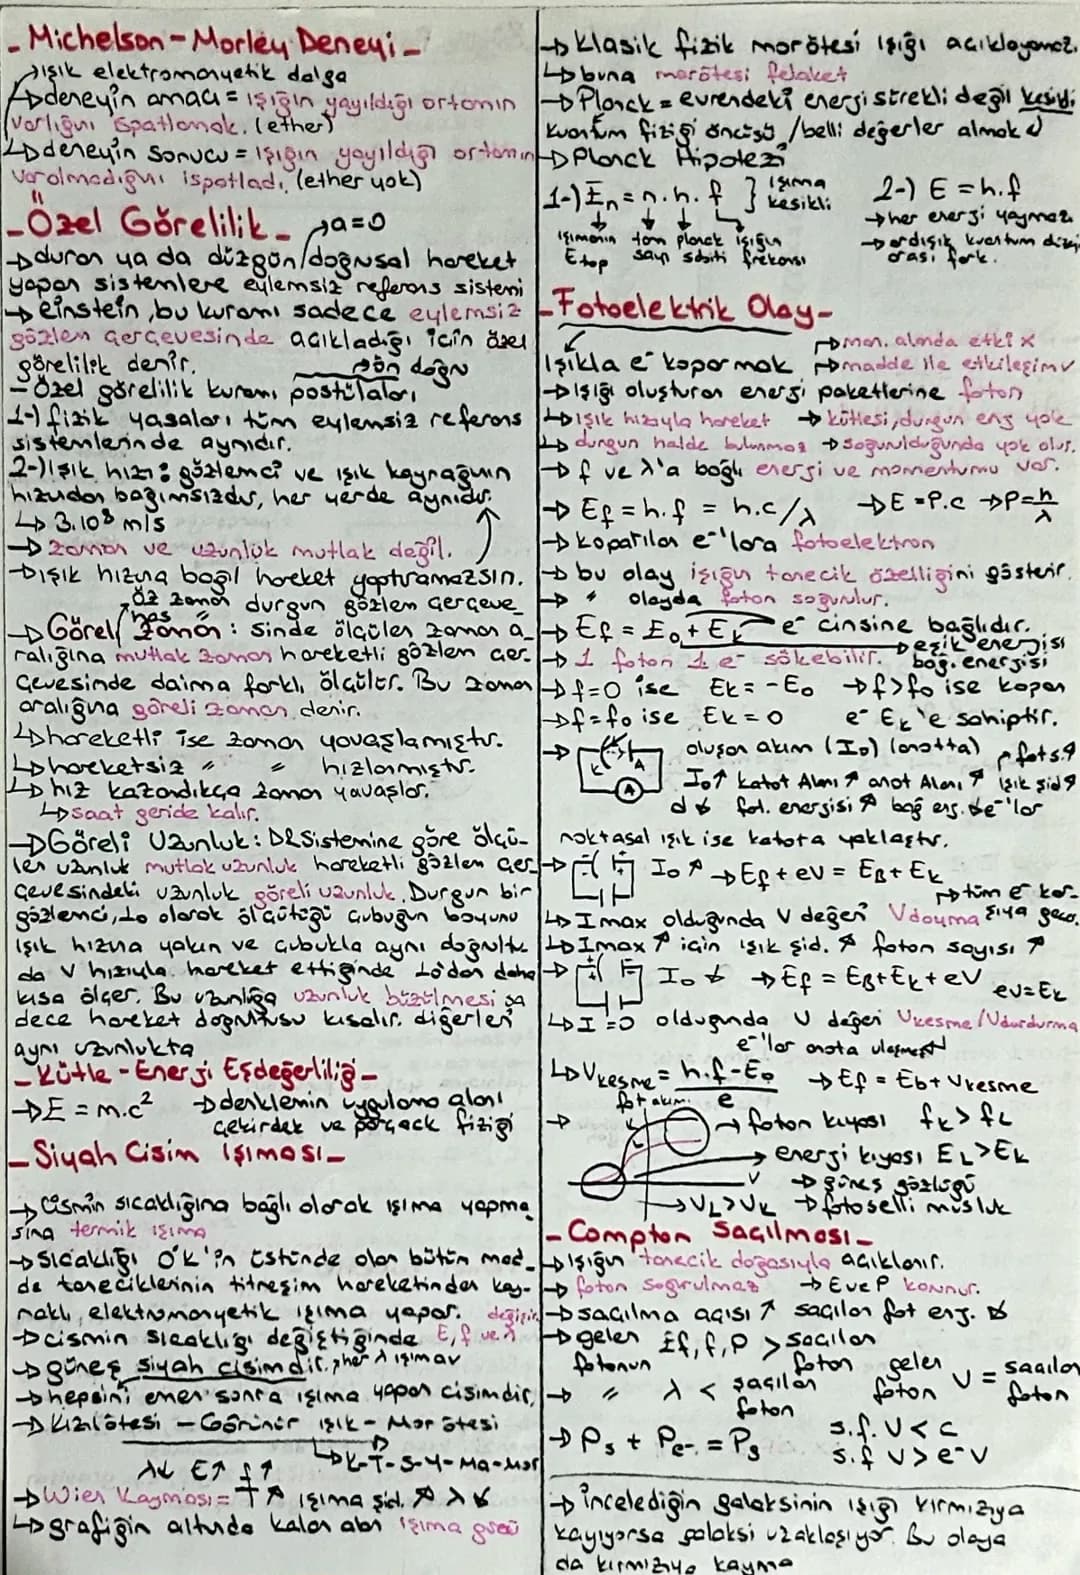 - Michelson-Morley Deneyi -
→ışık elektromanyetik dalga
→deneyin amacı = ışığın yayıldığı ortamın
varlığını ispatlamak. (ether)
→deneyin sonucu = ışığın yayıldığı ortamın
var olmadığını ispatladı. (ether yok)
- Özel Görelilik -
→a=0
→duran ya da düzgün/doğrusal hareket
yapan sistemlere eylemsiz referans sistemi
→einstein, bu kuramı sadece eylemsiz
gözlem çerçevesinde açıkladığı için özel
görelilik denir.
→ön doğru
- Özel görelilik kuramı postülaları
1-) fizik yasaları tüm eylemsiz referans
sistemlerinde aynıdır.
2-) Işık hızı: gözlemci ve ışık kaynağının
hızından bağımsızdır, her yerde aynıdır.
↳ 3.10⁸ m/s
→ zaman ve uzunluk mutlak değil.
→ışık hızına bağıl hareket yaptıramazsın.
öz zaman durgun gözlem çerçeve
has "
→Göreli Zaman: sinde ölçülen zaman a_
ralığına mutlak zaman hareketli gözlem çer_
çevesinde daima farklı ölçülür. Bu zaman
aralığına göreli zaman denir.
↳hareketli ise zaman yavaşlamıştır.
↳hareketsiz " " hızlanmıştır.
↳hız kazandıkça zaman yavaşlar.
↳saat geride kalır.
→Göreli Uzunluk: DRSistemine göre ölçü-
len uzunluk mutlak uzunluk hareketli gözlem çer_
çevesindeki uzunluk göreli uzunluk. Durgun bir
gözlemci, Lo olarak ölçütüğü çubuğun boyunu
ışık hızına yakın ve çubukla aynı doğrultu
da V hızıyla hareket ettiğinde Lo'dan daha
kısa ölçer. Bu uzunluğa uzunluk büzülmesi sa
dece hareket doğrultusu kısalır. diğerleri
aynı uzunlukta
- Kütle - Enerji Eşdeğerliliği -
→E = m.c² →denklemin uygulama alanı
çekirdek ve parçacık fiziği
- Siyah Cisim Işıması -
→Cismin sıcaklığına bağlı olarak ışıma yapma_
sına termik ışıma
→sıcaklığı 0°K'in üstünde olan bütün mad_
de taneciklerinin titreşim hareketinden kay-
naklı, elektromanyetik ışıma yapar.
→cismin sıcaklığı değiştiğinde E, f ve λ değişir
→güneş siyah cisimdir. her λ ışımav
→hepsini emer sonra ışıma yapan cisimdir.
→Kızılötesi - Görünür ışık - Mor ötesi
↳K-T-S-Y-Ma-Mor
λ↓ E↑ f↑
→Wien Kayması = T↑ ışıma şid. ↑ λ↓
↳grafiğin altında kalan alan ışıma gücü
→ Klasik fizik morötesi ışığı açıklayamaz.
↳ buna morötesi felaket
→ Planck = evrendeki enerji sürekli değil kesikli
kuantum fiziği öncüsü / belli değerler almak
→ Planck Hipotezi
1-) En = n.h.f } ışıma kesikli
ışımanın Etop tam sayı planck sabiti ışığın frekansı
2-) E = h.f
→her enerji yaymaz.
→ardışık kuantum düzeyi
arası fark.
- Fotoelektrik Olay -
Işıkla e⁻ koparmak
→man. alanda etki x
→madde ile etkileşim✓
→ışığı oluşturan enerji paketlerine foton
→ışık hızıyla hareket → kütlesi, durgun enj yok
→ durgun halde bulunmaz →soğurulduğunda yok olur.
→ f ve λ'a bağlı enerji ve momentumu var.
→ Ef = h.f = h.c/λ →E=P.c →P=h/λ
→ koparılan e⁻'lara fotoelektron
→ bu olay ışığın tanecik özelliğini gösterir.
→ " olayda foton soğurulur.
→ Ef = Eo + Ek e⁻ cinsine bağlıdır.
→eşik enerjisi
bağ. enerjisi
→ 1 foton 1 e⁻ sökebilir.
→f=0 ise Ek=-Eo →f>fo ise kopan
→f=fo ise Ek=0 e⁻ Ek'e sahiptir.
→ K A A oluşan akım (Io) (anotta) fots.↑
Io↑ katot Alanı↑ anot Alanı↑ ışık şid↑
d↓ fot. enerjisi↑ bağ enj. ↓ e⁻'lar
noktasal ışık ise katota yaklaştır.
→ Io↑ →Ef+eV = EB+Ek
→tüm e⁻ kar-
şıya geçer.
↳Imax olduğunda V değeri Vdoyma
↳Imax↑ için ışık şid.↑ foton sayısı↑
→ Io↓ →Ef = EB+Ek+eV
eV=Ek
↳I=0 olduğunda V değeri Vkesme/Vdurdurma
e⁻'lar anota ulaşmadı
↳Vkesme = h.f-Eo / e →Ef = Eb+Vkesme
fot akım.
→foton kıyası fK > fL
→energi kıyası EL>EK
V
→VL>VK
→güneş gözlüğü
→fotoselli musluk
- Compton Saçılması -
→Işığın tanecik doğasıyla açıklanır.
→ foton soğurulmaz →EveP korunur.
→saçılma açısı↑ saçılan fot enj.↓
→gelen fotonun Ef, f, P > saçılan foton
→ " λ < saçılan foton
gelen foton V = saçılan foton
→ Ps + Pe⁻ = Pg
s.f. V < c
s.f V > e⁻V
→incelediğin galaksinin ışığı kırmızıya
kayıyorsa galaksi uzaklaşıyor. Bu olaya
da kırmızıya kayma